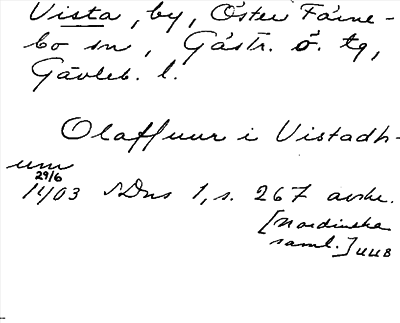 Vista, by, Öster Färne-
bo sn, Gästr. ö. tg,
Gävleb. l.
Olaffuur i Vistadh-
um
29/6
1403 SDns 1, s. 267 avskr.
[Nordinska
saml.] UUB